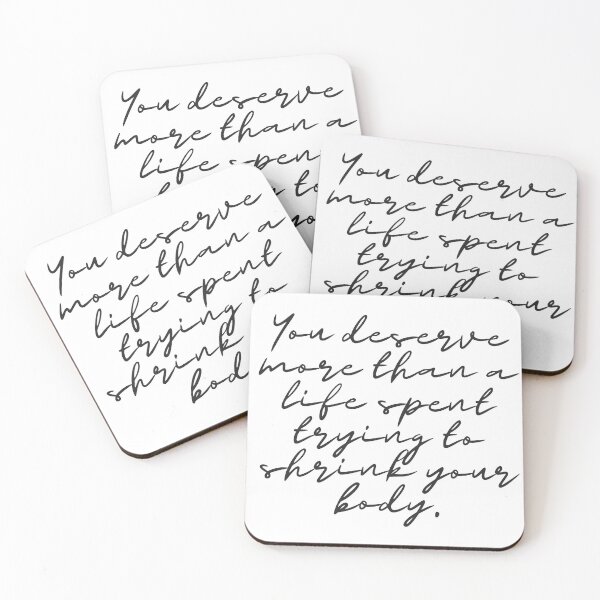 You deserve
more than a
life spent
to
You deserve
more than a
life spent
trying to
shrink your
You deserve
more than a
life spent
trying to
shrink
You deserve
more than a
life spent
trying to
shrink your
body.